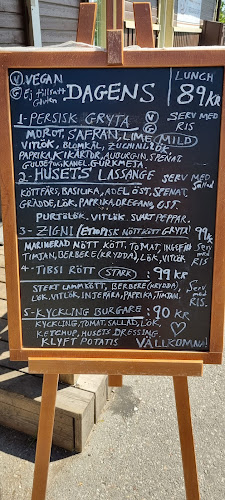 Ⓥ VEGAN
Ⓖ Ej tillsatt Gluten
DAGENS
LUNCH
89 KR
1- PERSISK GRYTA Ⓥ Ⓖ SERV MED RIS
MOROT, SAFRAN, LIME MILD
VITLÖK, BLOMKÅL, ZUCHINI, LÖK
PAPRIKA, KIKÄRTOR, AUBURGIN, SPENAT
KANEL, GURKMETA
2- HUSETS' LASSANGE SERV MED Sallad
KÖTTFÄRS, BASILIKA, ADEL ÖST, SPENAT,
GRÄDDE, LÖK, PAPRIKA, OREGANO, OST.
PURJOLÖK. VITLÖK. SVART PEPPAR.
3- ZIGNI / NÖTKÖTT GRYTA 99 kr
MARINERAD NÖTT KÖTT, TOMAT, INGEFÄR
TIMJAN, BERBERE (KRYDDA), LÖK, VITLÖK Serv med RIS
4- TIBSI RÖTT STARK : 99 KR
STEKT LAMMKÖTT, BERBERE (KRYDDA), Serv med
LÖK. VITLÖK, INJEFÄRA, PAPRIKA, TIMJAN. RIS.
5- KYCKLING BURGARE : 90 KR
KYCKLING, TOMAT, SALLAD, LÖK,
KETCHUP, HUSETS DRESSING.
KLYFT POTATIS VÄLKOMNA!